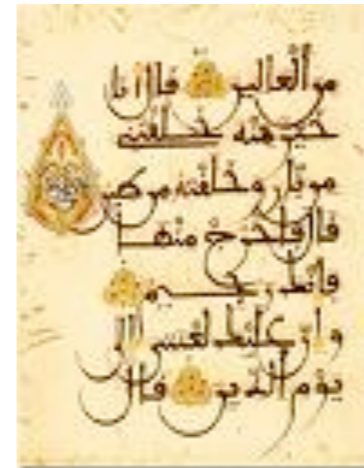 من ٱلعالين قال أنا
خير منه خلقتنى
من نار وخلقته من طين
قال فاخرج منها
فإنك رجيم
وإن عليك لعنتى إلى
يوم ٱلدين قال